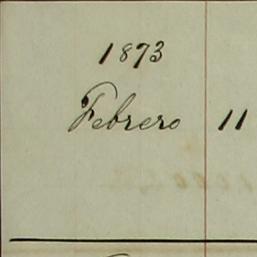 1873
Febrero 11